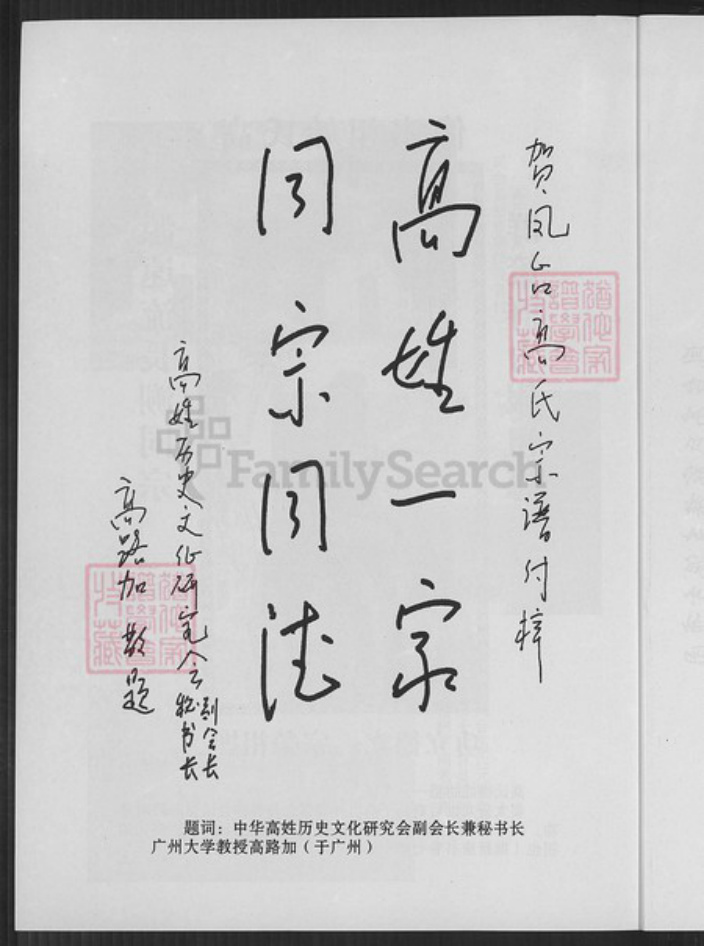 贺凤台高氏宗谱付梓
高姓一家
同宗同德
高姓历史文化研究会
副会长
秘书长
高路加敬题
FamilySearch
题词：中华高姓历史文化研究会副会长兼秘书长
广州大学教授高路加（于广州）